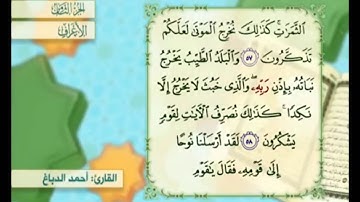 الجزء الثامن
الأعراف
الثَّمَرَٰتِ كَذَٰلِكَ نُخْرِجُ الْمَوْتَىٰ لَعَلَّكُمْ
تَذَكَّرُونَ ٥٧ وَالْبَلَدُ الطَّيِّبُ يَخْرُجُ
نَبَاتُهُ بِإِذْنِ رَبِّهِۦ وَالَّذِى خَبُثَ لَا يَخْرُجُ إِلَّا
نَكِدًا ۚ كَذَٰلِكَ نُصَرِّفُ الْآيَٰتِ لِقَوْمٍ
يَشْكُرُونَ ٥٨ لَقَدْ أَرْسَلْنَا نُوحًا
إِلَىٰ قَوْمِهِۦ فَقَالَ يَٰقَوْمِ
القارئ: أحمد الدباغ